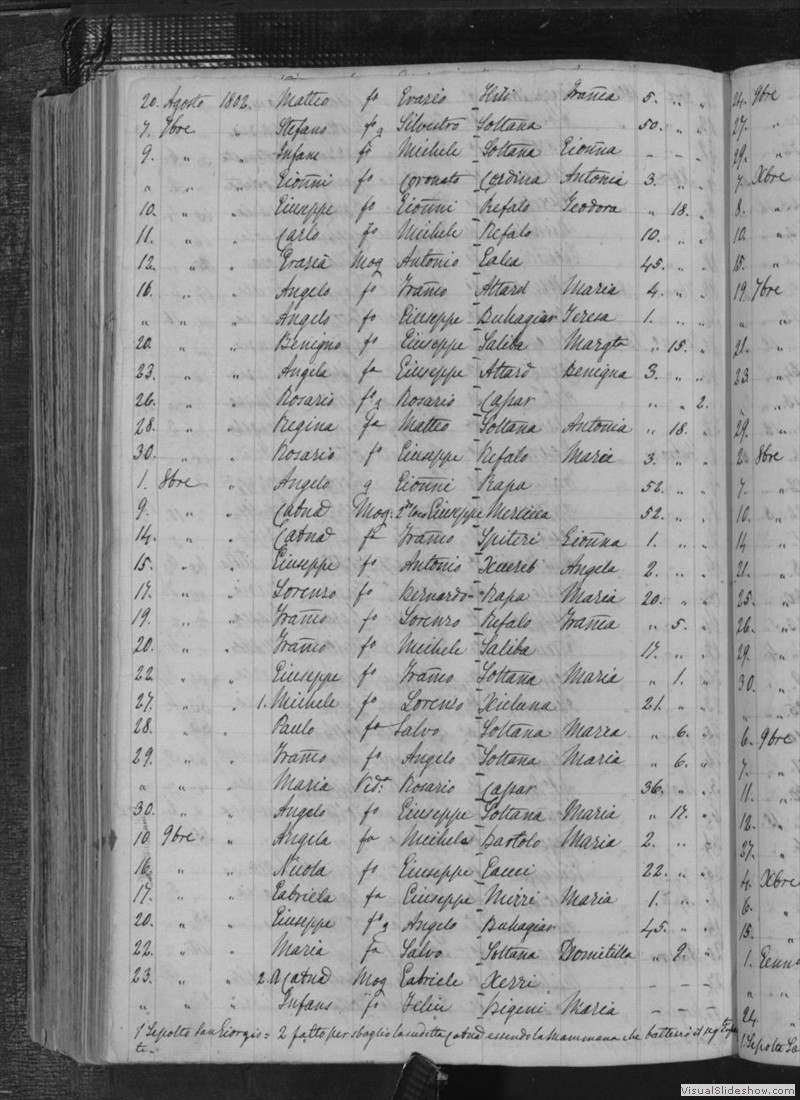 20. Agosto 1802. Matteo fo Evario Frañca 5. " "
7. 7bre " Stefano fo g Silvestro Soltana 50. " "
9. " " Infans fo Michele Soltana Gioñna - - -
" " " Gioñni fo Coronato Cordina Antonia 3. " "
10. " " Giuseppe fo Gioñni Refalo Teodora " 18. "
11. " " Carlo fo Michele Refalo 10. " "
12. " " Grazia Mog Antonio Galea 45. " "
16. " " Angelo fo Franco Attard Maria 4. " "
" " " Angelo fo Giuseppe Buhagiar Teresa 1. " "
20. " " Benigno fo Giuseppe Saliba Margta " 15. "
23. " " Angela fa Giuseppe Attard Benigna 3. " "
26. " " Rosario fo g Rosario Capar " " 2.
28. " " Regina fa Matteo Soltana Antonia " 18. "
30. " " Rosario fo Giuseppe Refalo Maria 3. " "
1. 8bre " Angelo g Gioñni Rapa 52. " "
9. " " Catna Mog: Giuseppe Mercieca 52. " "
14. " " Catna fa Franco Spiteri Gioñna 1. " "
15. " " Giuseppe fo Antonio Xicureb Angela 2. " "
17. " " Lorenzo fo Bernardo Rapa Maria 20. " "
19. " " Franco fo Lorenzo Refalo Franca " 5. "
20. " " Franco fo Michele Saliba 17. " "
22. " " Giuseppe fo Franco Soltana Maria " 1. "
27. " " 1. Michele fo Lorenzo Xicluna 21. " "
28. " " Paulo fo Salvo Soltana Marza " 6. "
29. " " Franco fo Angelo Soltana Maria " 6. "
" " " Maria Vida Rosario Capar 36. " "
30. " " Angelo fo Giuseppe Soltana Maria " 17. "
10 9bre " Angela fa Michele Bartolo Maria 2. " "
16. " " Nicola fo Giuseppe Gauci 22. " "
17. " " Gabriela fa Giuseppe Mizzi Maria 1. " "
20. " " Giuseppe fo g Angelo Buhagiar 45. " "
22. " " Maria fa Salvo Soltana Domitilla " 9. "
23. " " 2. Catna Mog Gabriele Xerri - - -
" " " Infans fo Felix Bigeni Maria - - -
1 Sepolto San Giorgio = 2 fatto per sbaglio la sudetta Catna essendo la mammana che battezzò il
24. 9bre
27. "
29. "
7. Xbre
8. "
10. "
15. "
19. 7bre
" "
21. "
23. "
" "
29. "
2. 8bre
7. "
10. "
14 "
21. "
25. "
26. "
29. "
30. "
" "
6. 9bre
7. "
11. "
12. "
27. "
4. Xbre
6. "
15. "
1. Genn
" "
24. "
1. Sepolto Sa
VisualSlideshow.com